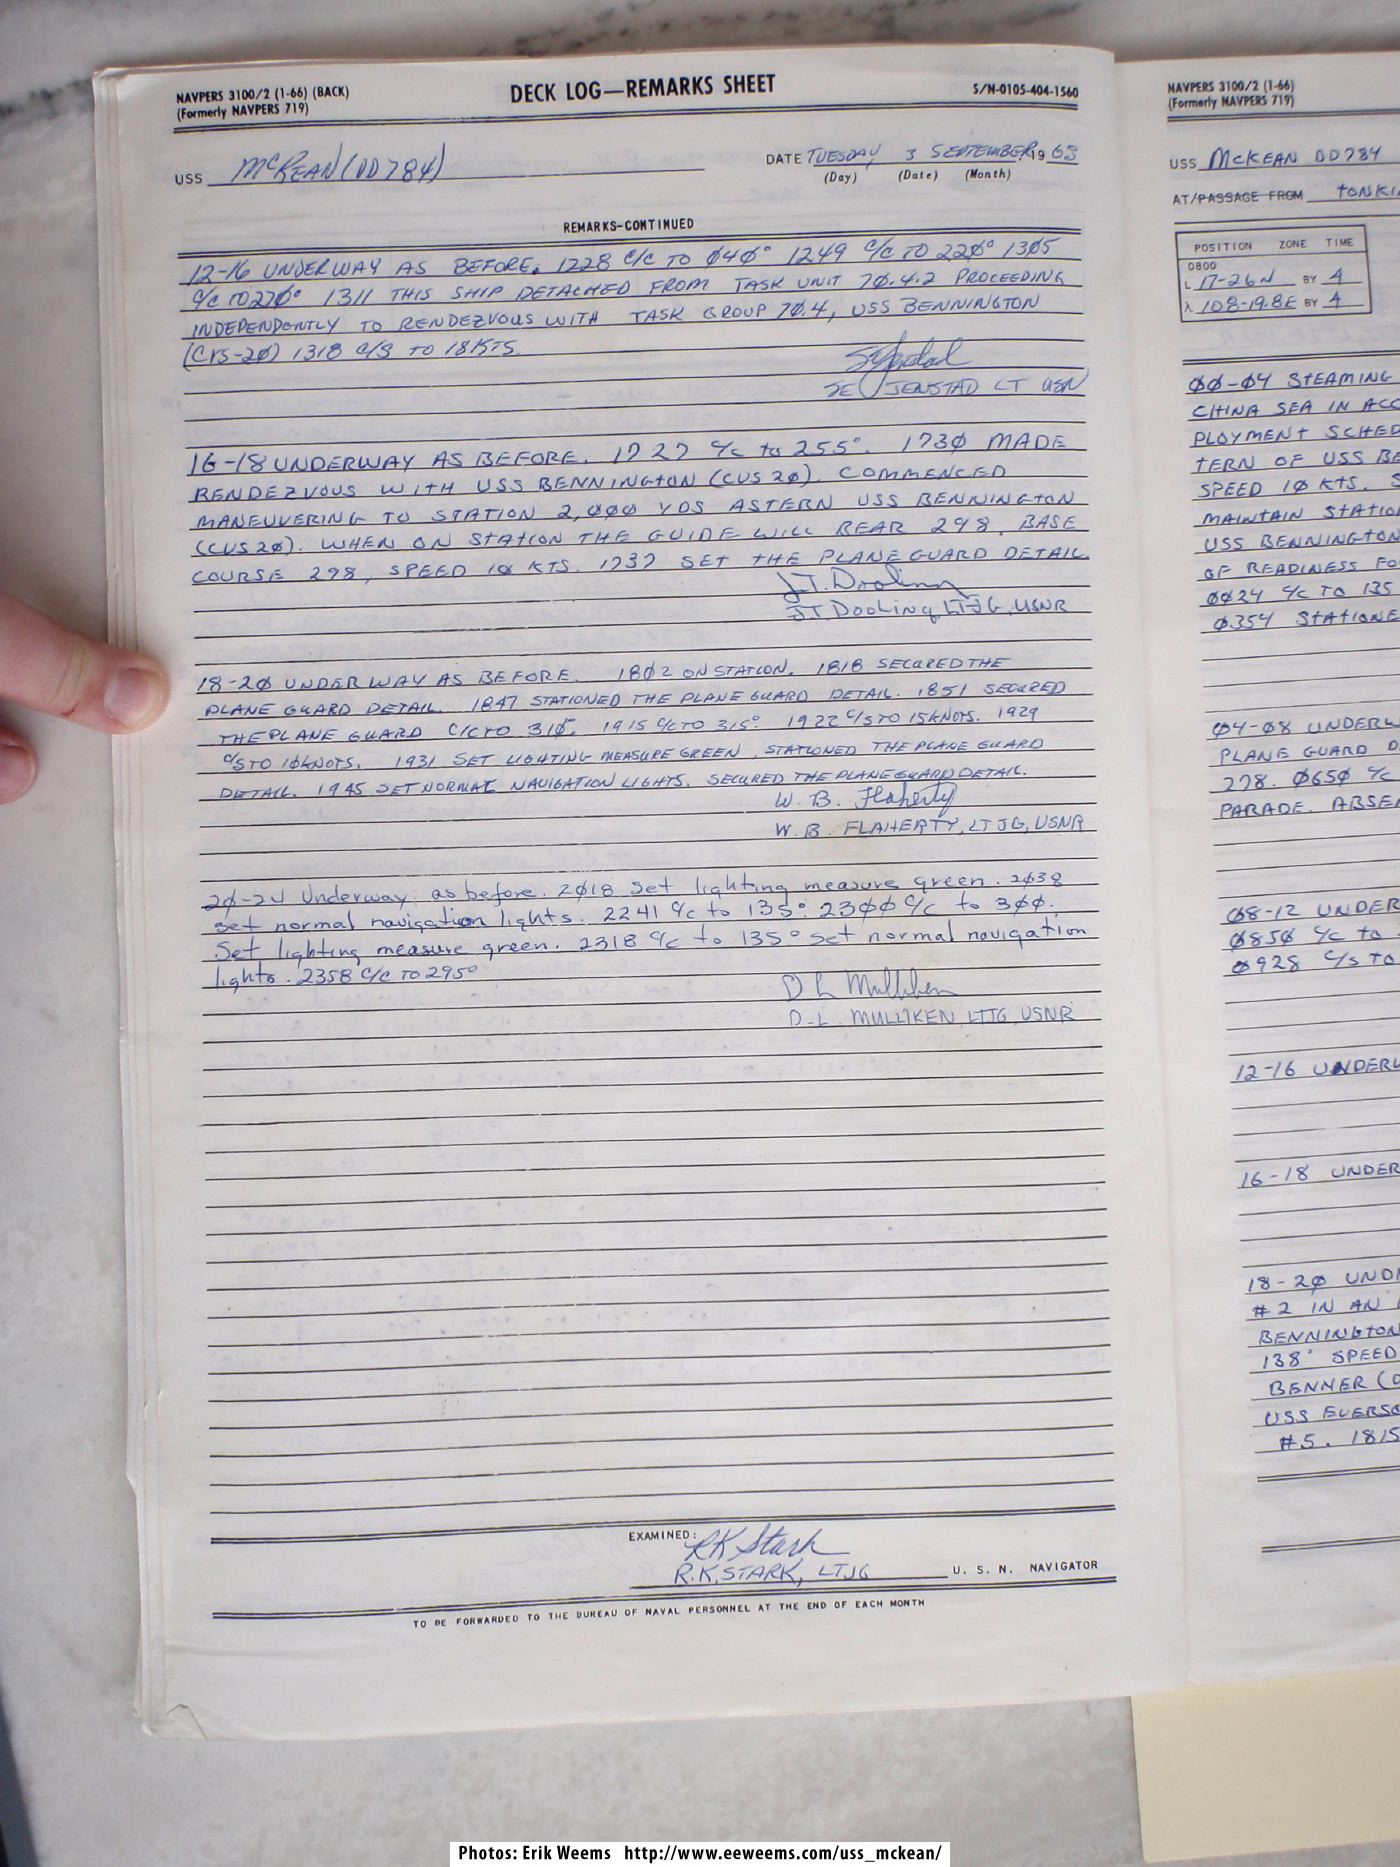 NAVPERS 3100/2 (1-66) (BACK)
(Formerly NAVPERS 719)
DECK LOG—REMARKS SHEET
S/N-0105-404-1560
USS McKEAN (DD784)
DATE TUESDAY 3 SEPTEMBER 19 68
(Day) (Date) (Month)
REMARKS-CONTINUED
12-16 UNDERWAY AS BEFORE. 1228 C/C TO Ø4Ø° 1249 C/C TO 22Ø° 13Ø5
C/C TO 27Ø° 1311 THIS SHIP DETACHED FROM TASK UNIT 7Ø.4.2 PROCEEDING
INDEPENDENTLY TO RENDEZVOUS WITH TASK GROUP 7Ø.4, USS BENNINGTON
(CVS-2Ø) 1318 C/S TO 18 KTS.
JENSTAD LT USN
16-18 UNDERWAY AS BEFORE. 1727 C/C to 255°. 173Ø MADE
RENDEZVOUS WITH USS BENNINGTON (CVS 2Ø). COMMENCED
MANEUVERING TO STATION 2,ØØØ YDS ASTERN USS BENNINGTON
(CVS 2Ø). WHEN ON STATION THE GUIDE WILL BEAR 298, BASE
COURSE 298, SPEED 1Ø KTS. 1737 SET THE PLANE GUARD DETAIL
J.T. Dooling
J.T. DOOLING, LTJG, USNR
18-2Ø UNDERWAY AS BEFORE. 18Ø2 ON STATION. 1818 SECURED THE
PLANE GUARD DETAIL. 1847 STATIONED THE PLANE GUARD DETAIL. 1851 SECURED
THE PLANE GUARD C/C TO 31Ø°. 1915 C/C TO 315°. 1922 C/S TO 15 KNOTS. 1929
C/S TO 1Ø KNOTS. 1931 SET LIGHTING MEASURE GREEN, STATIONED THE PLANE GUARD
DETAIL. 1945 SET NORMAL NAVIGATION LIGHTS. SECURED THE PLANE GUARD DETAIL.
W. B. Flaherty
W. B. FLAHERTY, LTJG, USNR
2Ø-24 Underway as before. 2Ø18 Set lighting measure green. 2Ø38
set normal navigation lights. 2241 C/c to 135°. 23ØØ C/c to 3ØØ.
Set lighting measure green. 2318 C/c to 135° set normal navigation
lights. 2358 C/C TO 295°
D L Mulliken
D. L. MULLIKEN, LTJG, USNR
EXAMINED:
RK Stark
R.K. STARK, LTJG U. S. N. NAVIGATOR
TO BE FORWARDED TO THE BUREAU OF NAVAL PERSONNEL AT THE END OF EACH MONTH
NAVPERS 3100/2 (1-66)
(Formerly NAVPERS 719)
USS MCKEAN DD784
AT/PASSAGE FROM TONKI
POSITION ZONE TIME
0800
L 17-26N BY 4
λ 108-19.8E BY 4
ØØ-Ø4 STEAMING
CHINA SEA IN ACC
PLOYMENT SCHED
TERN OF USS BE
SPEED 1Ø KTS. S
MAINTAIN STATIO
USS BENNINGTON
OF READINESS FO
ØØ24 C/C TO 135
Ø354 STATIONE
Ø4-Ø8 UNDERW
PLANE GUARD D
278. Ø65Ø C/C
PARADE. ABSE
Ø8-12 UNDER
Ø85Ø C/C to
Ø928 C/S TO
12-16 UNDERW
16-18 UNDER
18-2Ø UND
#2 IN AN
BENNINGTON
138° SPEED
BENNER (D
USS EVERSO
#5. 1815
Photos: Erik Weems http://www.eeweems.com/uss_mckean/